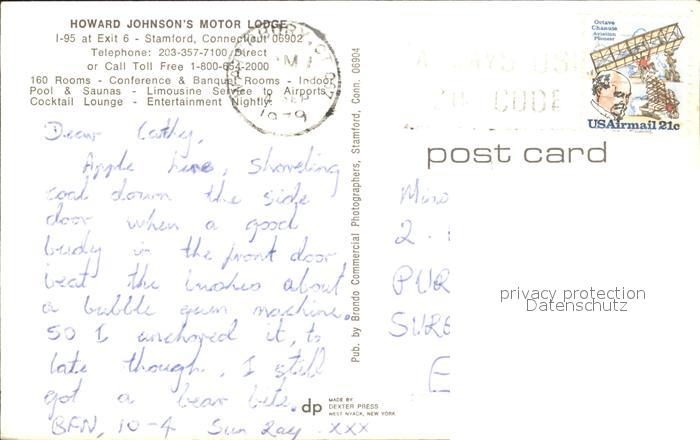 HOWARD JOHNSON'S MOTOR LODGE
I-95 at Exit 6 - Stamford, Connecticut 06902
Telephone: 203-357-7100 Direct
or Call Toll Free 1-800-654-2000
160 Rooms - Conference & Banquet Rooms - Indoor
Pool & Saunas - Limousine Service to Airports
Cocktail Lounge - Entertainment Nightly
Dear Cathy,
Apple here, shoveling
coal down the side
door when a good
buddy in the front door
beat the bushes about
a bubble gum machine.
SO I anchored it, to
late though, I still
got a bear bite.
BFN, 10-4 Sun Ray XXX
Pub. by Brondo Commercial Photographers, Stamford, Conn. 06904
dp
MADE BY
DEXTER PRESS
WEST NYACK, NEW YORK
SEP
Octave
Chanute
Aviation
Pioneer
USAirmail 21c
ZIP CODE
post card
2.
PUR
SURE
E
privacy protection
Datenschutz